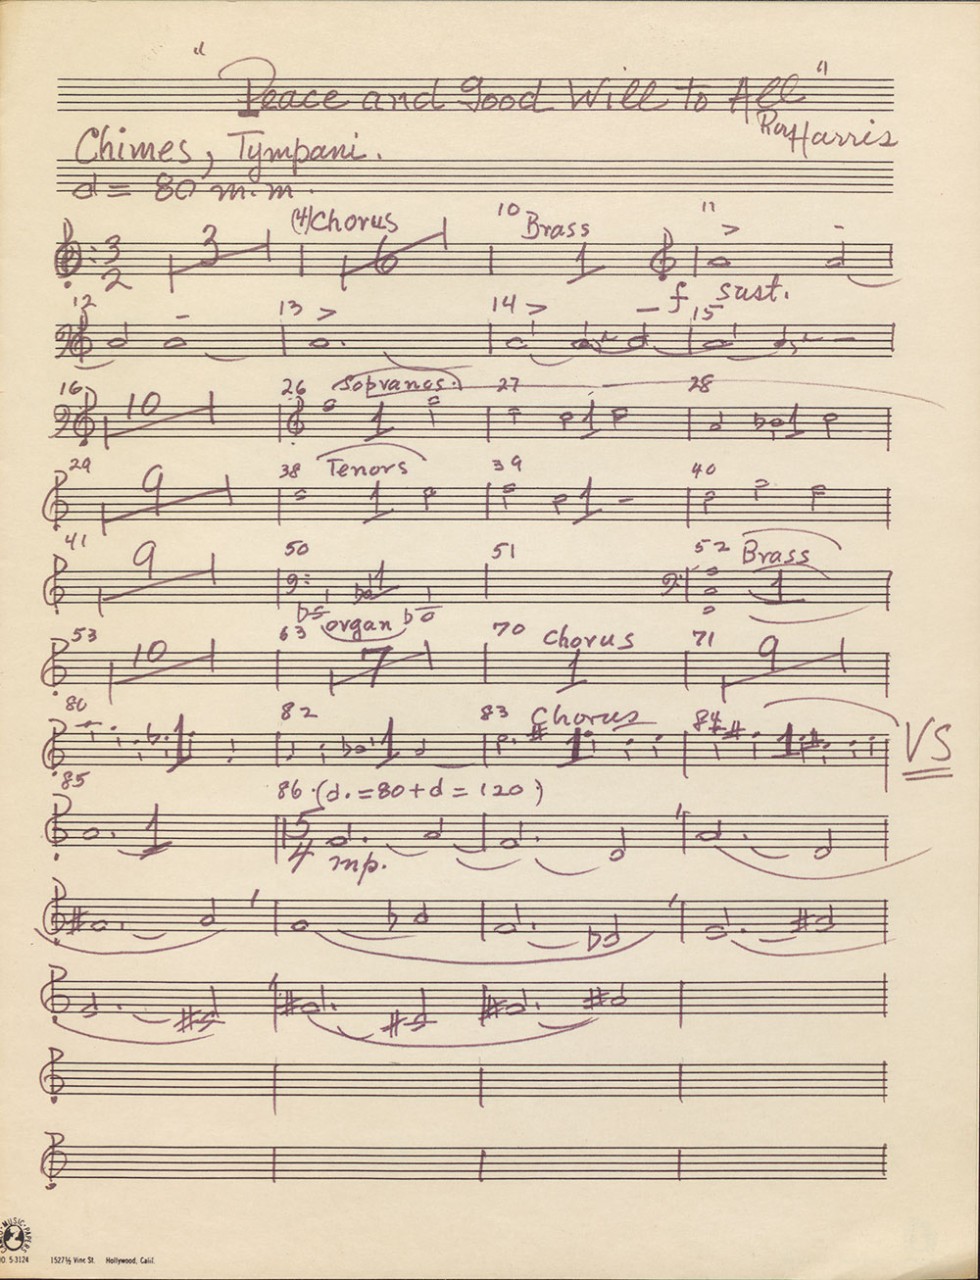 "Peace and Good Will to All"
Roy Harris
Chimes, Tympani.
d = 80 m.m.
(4) Chorus 10 Brass 11
3 2 3 6 1
f sust.
12 13 14 15
16 26 Sopranos. 27 28
10 1 1 1
29 38 Tenors 39 40
9 1 1
41 50 51 52 Brass
9 1 1
organ
53 63 70 Chorus 71
10 7 1 9
80 82 83 Chorus 84
1 1 1 1 VS
85 86. (d. = 80 + d = 120)
1 5 4 mp.
MUSIC PAPERS
NO. S-3124 1527½ Vine St. Hollywood, Calif.